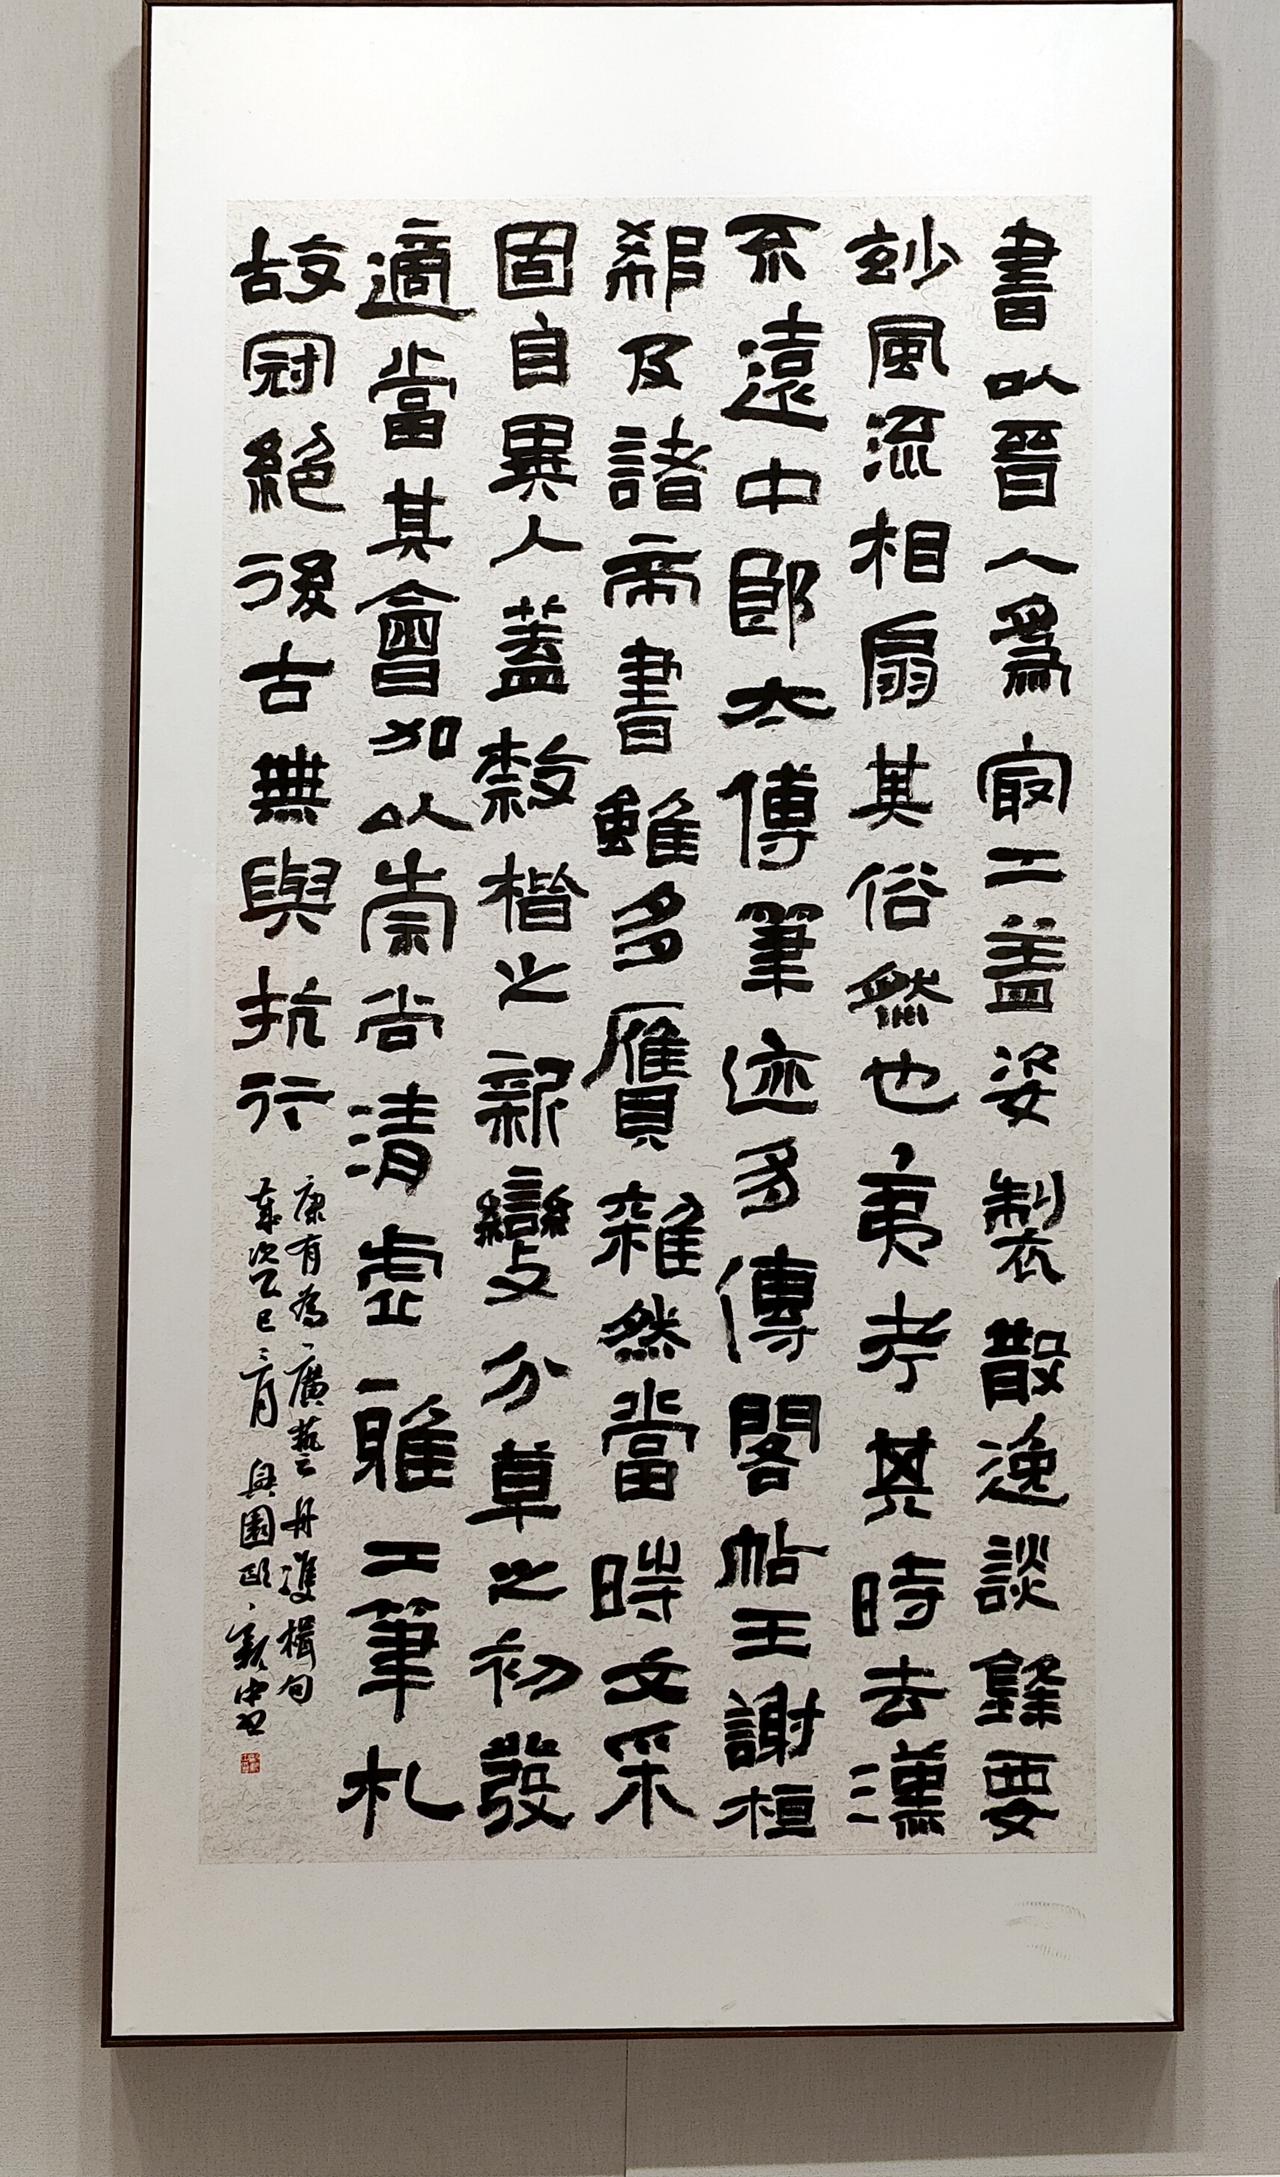 書以晉人爲最工蓋姿製散逸談鋒要
玅風流相扇其俗然也夷考其時去漢
不遠中郎太傅筆迹多傳閣帖王謝桓
郗及諸帝書雖多贋雜然當時文采
固自異人蓋隸楷之新變分草之初發
適當其會加以崇尚清虛雅工筆札
故冠絕後古無與抗行
康有為廣藝舟雙楫句
歲次乙巳